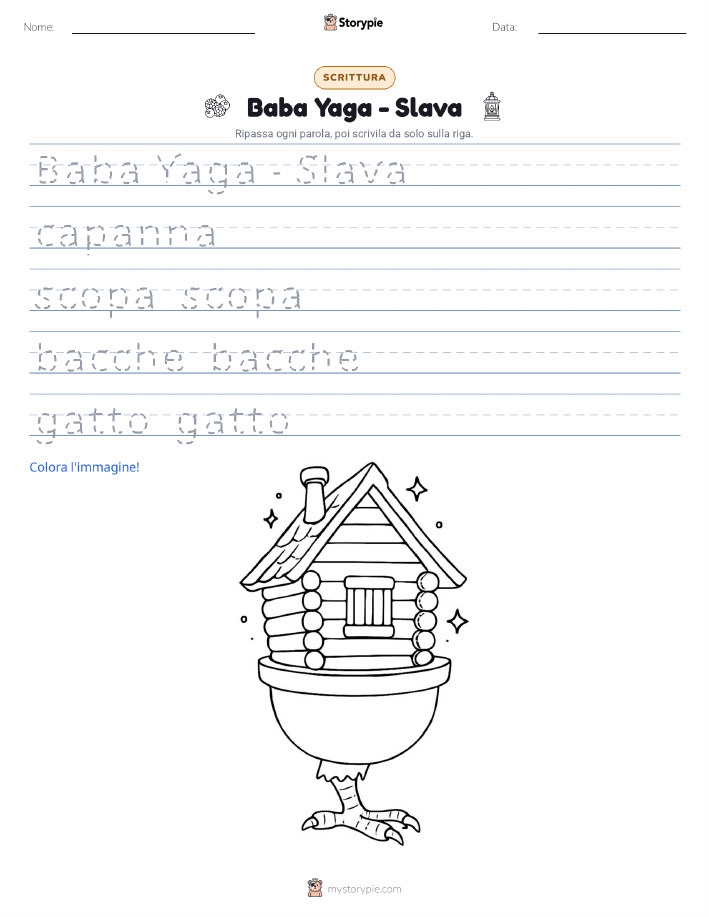 Nome: Storypie Data:
SCRITTURA
Baba Yaga - Slava
Ripassa ogni parola, poi scrivila da solo sulla riga.
Baba Yaga - Slava
capanna
scopa scopa
bacche bacche
gatto gatto
Colora l'immagine!
mystorypie.com